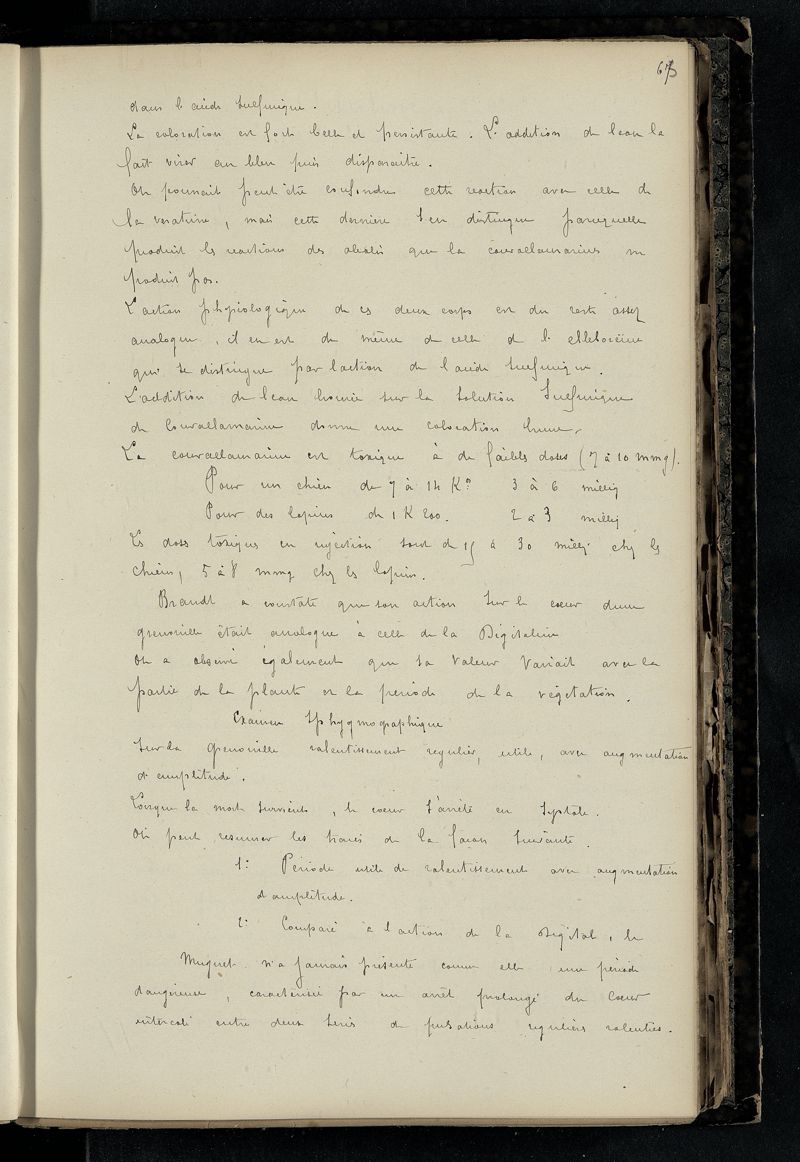 67
dans l'acide sulfurique.
La coloration est fort belle et persistante. L'addition de l'eau la
fait virer au bleu puis disparaitre.
On pourrait peut être confondre cette reaction avec celle de
la veratrine, mais cette dernière s'en distingue parcequ'elle
produit les reactions des alcalis que la convallamarine ne
produit pas.
L'action physiologique de ces deux corps est du reste assez
analogue, il en est de même de celle de l'elleboreïne
qui se distingue par l'action de l'acide sulfurique.
L'addition de l'eau bromée sur la solution sulfurique
de convallamarine donne une coloration brune.
La convallamarine est toxique à de faibles doses (7 à 10 mmg).
Pour un chien de 7 à 14 Kos 3 à 6 millig
Pour des lapins de 1 K 200. 2 à 3 millig
Les doses toxiques en injection sont de 15 à 30 millig chez les
chiens, 5 à 8 mmg chez les lapins.
Brandt a constaté que son action sur le coeur d'une
grenouille était analogue à celle de la Digitaline
On a observé également que sa valeur variait avec la
partie de la plante et la periode de la végétation.
Examen Sphygmographique
Sur la grenouille ralentissement regulier, utile, avec augmentation
d'amplitude.
Lorsque la mort survient, le coeur s'arrête en systole.
On peut resumer les tracés de la façon suivante.
1° Période utile de ralentissement avec augmentation
d'amplitude.
2° Comparé à l'action de la Digitale, le
Muguet n'a jamais présenté comme elle une période
dangereuse, caracterisée par un arrêt prolongé du coeur
intercalé entre deux series de pulsations regulières ralenties.